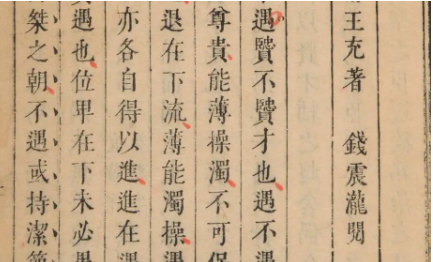 王充著 錢震瀧閱
遇贒不贒才也遇不遇
尊貴能薄操濁不可保
退在下流薄能濁操遇
亦各自得以進進在遇
遇也位卑在下未必
桀之朝不遇或持潔